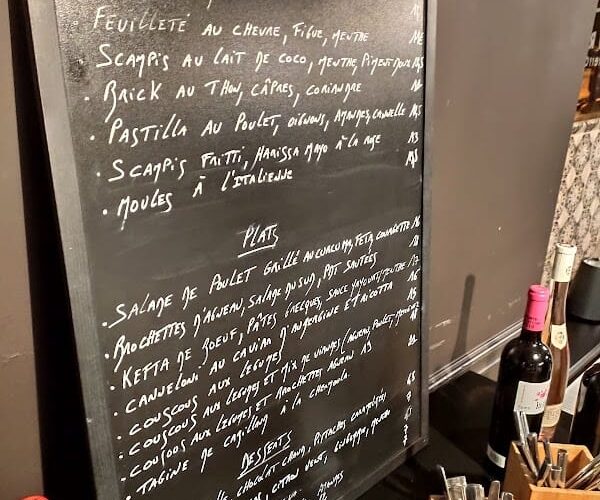 FEUILLETÉ AU CHEVRE, FIGUE, MENTHE
· SCAMPIS AU LAIT DE COCO, MENTHE, PIMENT DOUX
· BRICK AU THON, CÂPRES, CORIANDRE
· PASTILLA AU POULET, OIGNONS, AMANDES, CANNELLE
· SCAMPIS FRITTI, HARISSA MAYO À LA ROSE 13
· MOULES À L'ITALIENNE
PLATS
· SALADE DE POULET GRILLÉ AU CURCUMA, FETA, COURGETTE 16
· BROCHETTES D'AGNEAU, SALADE DU SUD, PDT SAUTÉES 18
· KEFTA DE BOEUF, PÂTES GRECQUES, SAUCE YAYOURT/MENTHE 17
· CANNELONI AU CAVIAR D'AUBERGINE ET RICOTTA 16
· COUSCOUS AUX LEGUMES 15
· COUSCOUS AUX LEGUMES ET MIX DE VIANDES (AGNEAU, POULET,
· COUSCOUS AUX LEGUMES ET BROCHETTES AGNEAU 19
· TAGINE DE CABILLAUD À LA CHERMOULA
DESSERTS
CHOCOLAT CHAUD, PISTACHES CARAMÉLISÉES,
CITRON VERT, GINGEMBRE, MENTHE